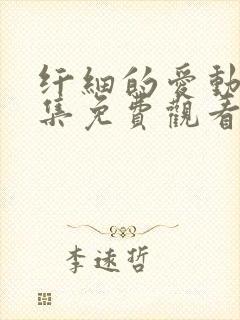 纤細的愛動
集免費觀看
李遠哲